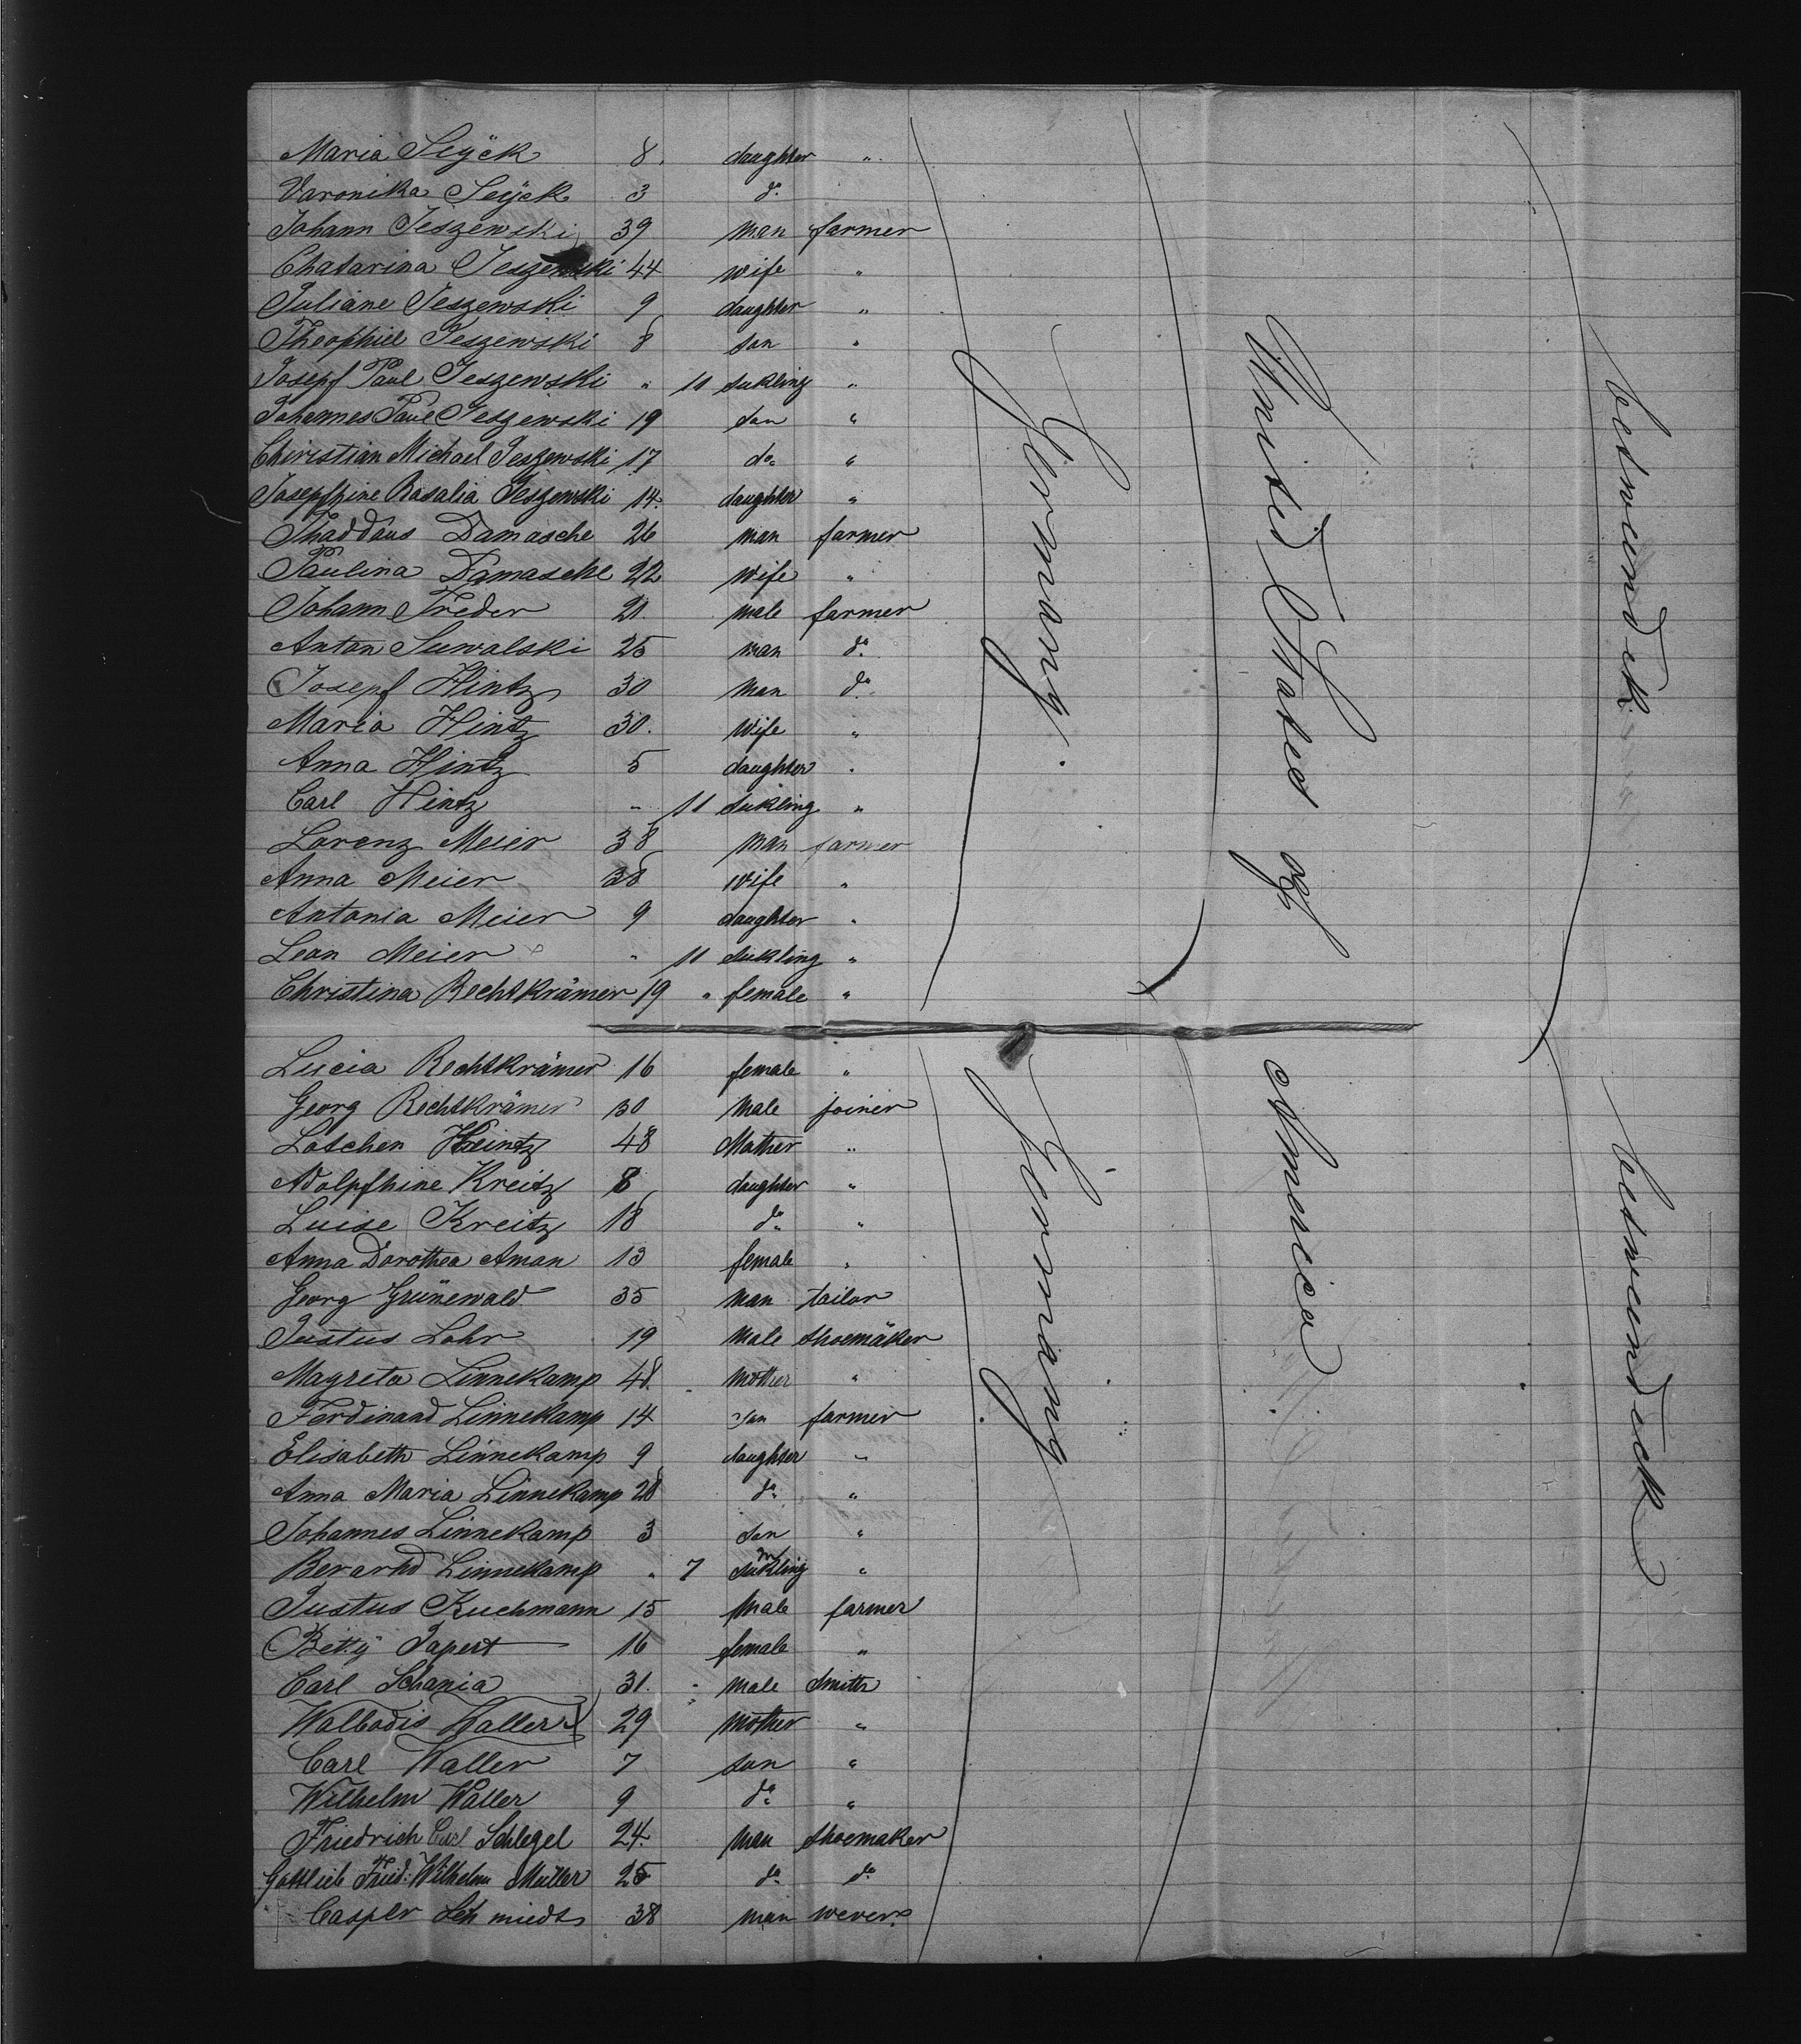 Maria Seÿck 8. daughter "
Varonika Seÿck 3 do.
Johann Jeszewski 39 man farmer
Chatarina Jeszewski 44 wife "
Juliane Jeszewski 9 daughter "
Theophiel Jeszewski 8 son "
Josepf Paul Jeszewski " 11 sukling "
Johannes Paul Jeszewski 19 son "
Christian Michael Jeszewski 17 do. "
Josepfhine Rosalia Jeszewski 14. daughter "
Thaddäus Damasche 26 man farmer
Paulina Damasche 22 wife "
Johann Treder 21. male farmer
Anton Suwalski 25 man do.
Josepf Hintz 30 man do.
Maria Hintz 30. Wife "
Anna Hintz 5 daughter "
Carl Hintz " 11 sukling "
Lorenz Meier 38 man farmer
Anna Meier 38 wife "
Antonia Meier 9 daughter "
Leon Meier " 11 sukling "
Christina Rechtkrämer 19 " female "
Germany.
United States of
betweendeck
Lucia Rechtkrämer 16 female "
Georg Rechtkrämer 30 Male joiner
Lotschen 48 Mother "
Adolpfhine Kreitz 8 daughter "
Luise Kreitz 18 do. "
Anna Dorothea Aman 13 female "
Georg Grünewald 35 man tailor
Justus Lohr 19 Male shoemäker
Magreta Linnekamp 48. mother "
Ferdinand Linnekamp 14 son farmer
Elisabeth Linnekamp 9 daughter "
Anna Maria Linnekamp 28 do. "
Johannes Linnekamp 3 son "
Berarhd Linnekamp " 7 sukling "
Justus Kuchmann 15 Male farmer
Betty Papert 16 female "
Carl Schania 31. male smith
Walbodis Haller 29 mother "
Carl Waller 7 son "
Wilhelm Waller 9 do. "
Friedrich Carl Schlegel 24. man shoemaker
Gottlieb Fried: Wilhelm Müller 25 do. do.
Casper Schmiedt 38 man wever
Germany
America
betweendeck